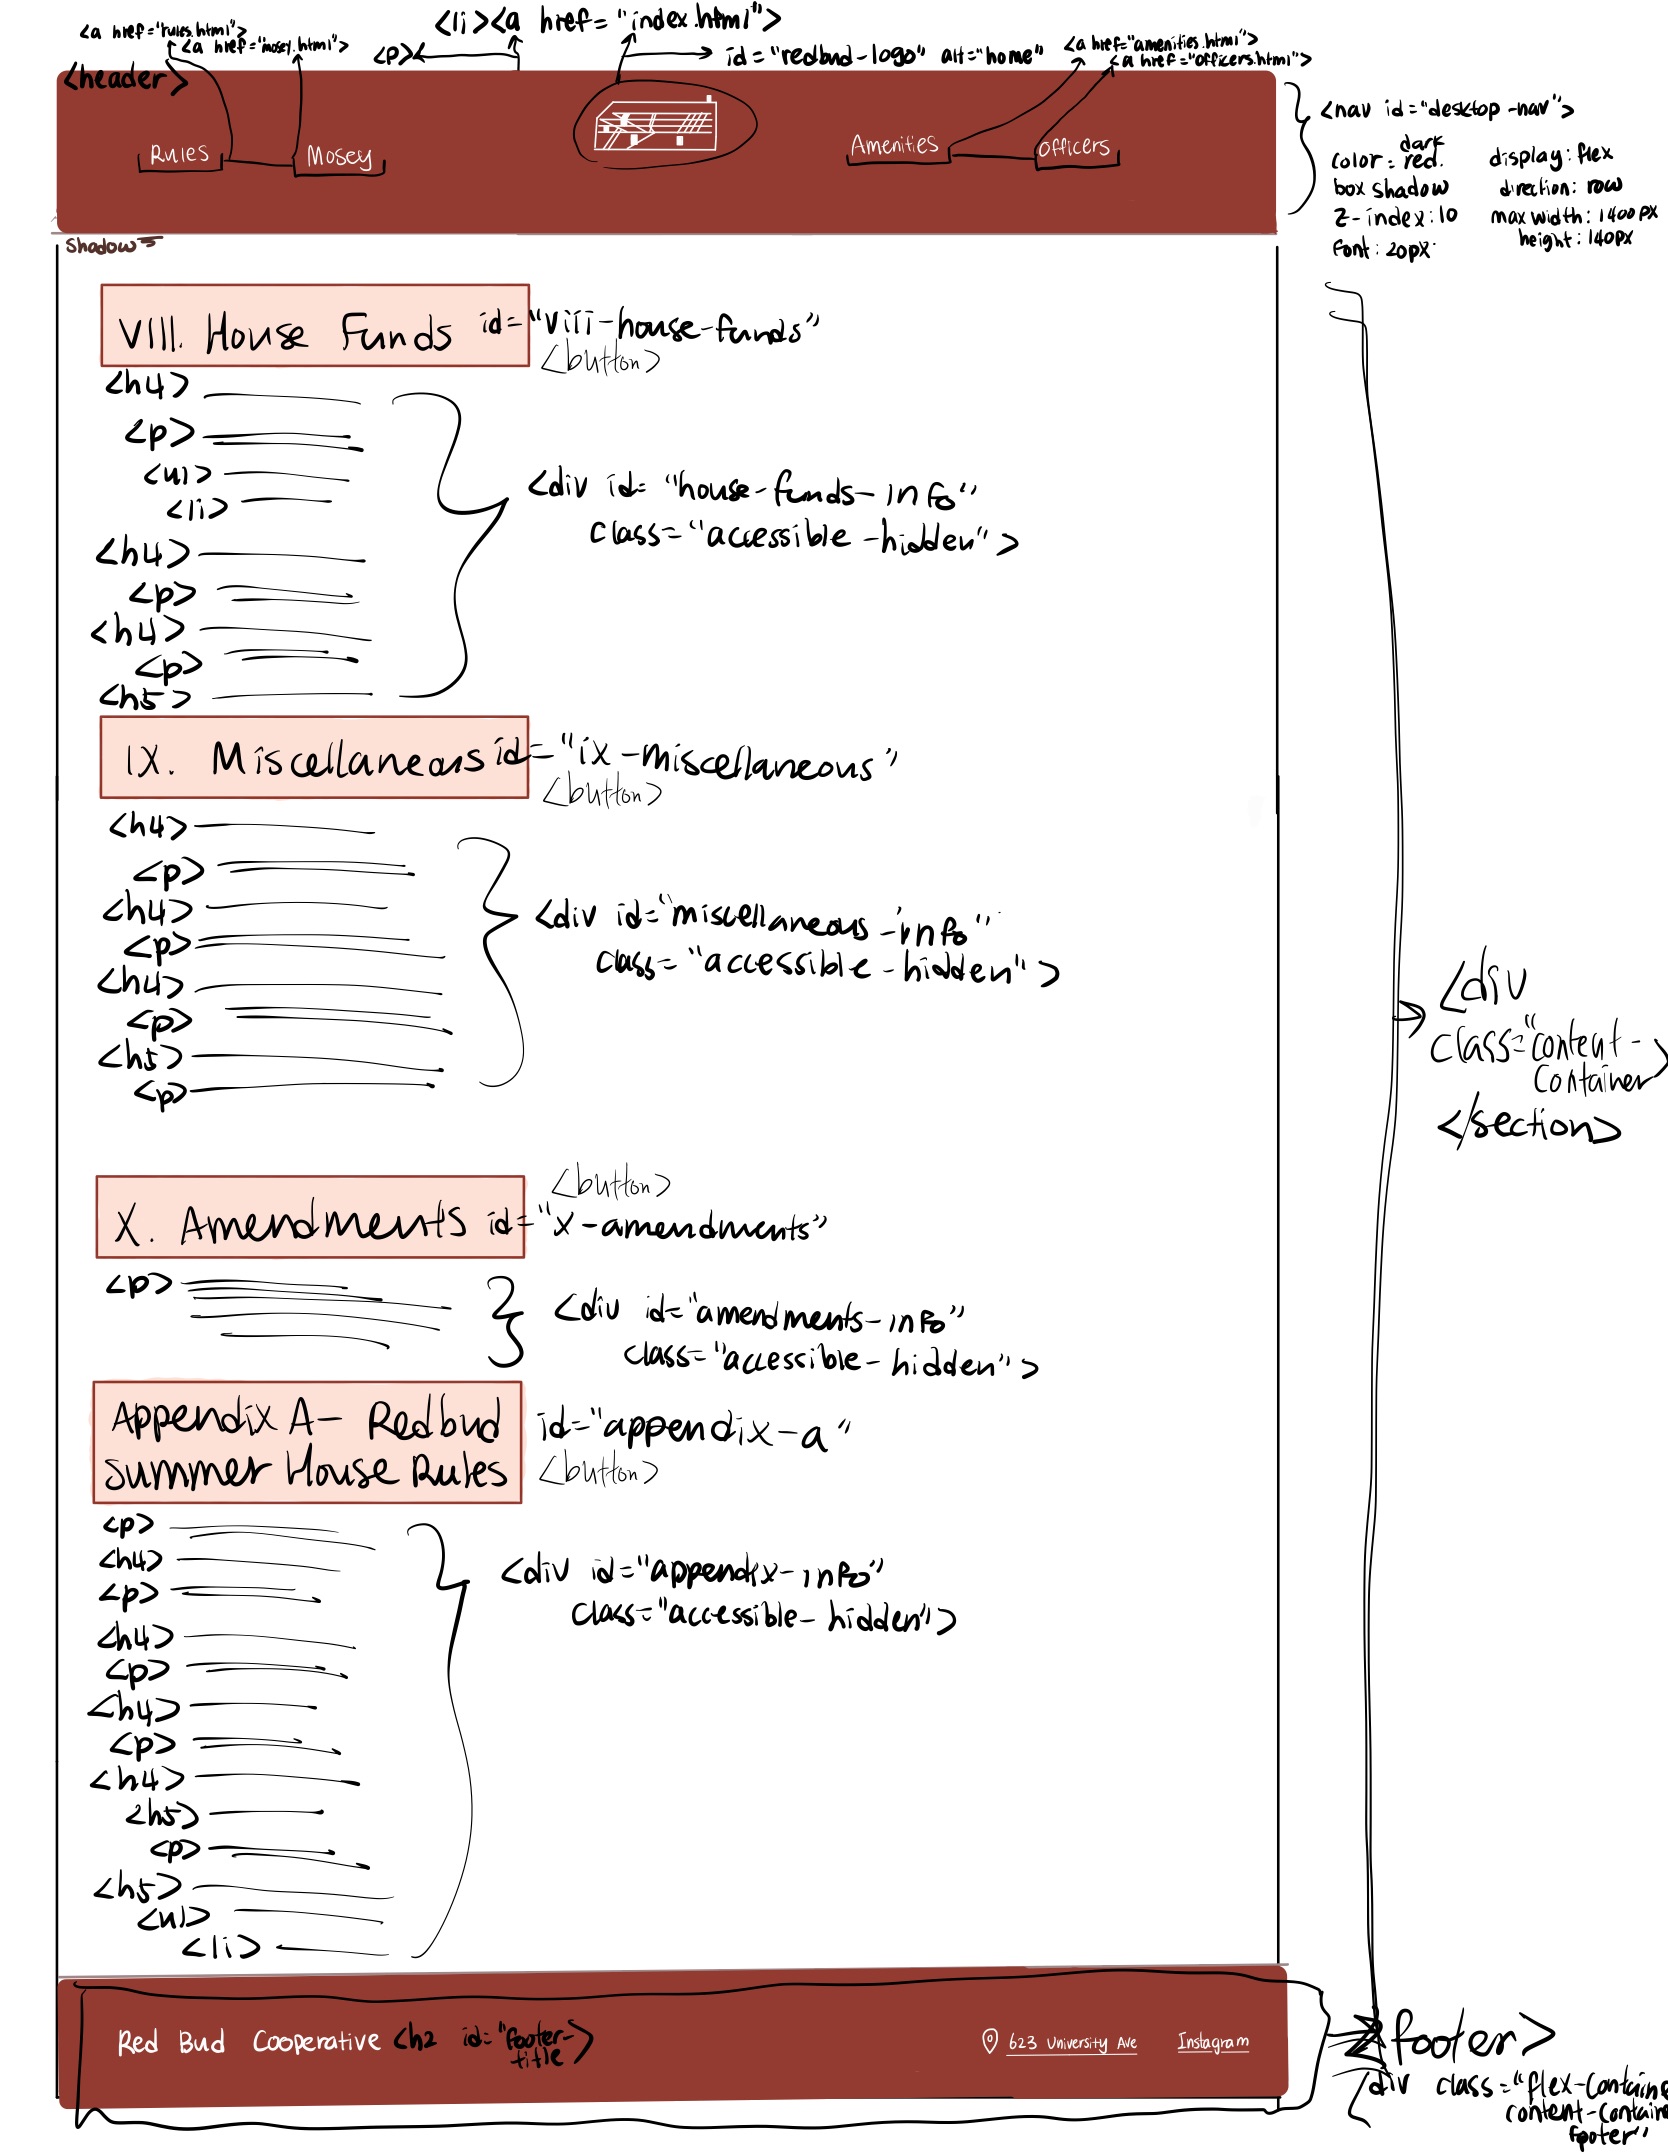 <a href="rules.html">
<a href="mosey.html">
<li><a href="index.html">
<p>
id="redbud-logo" alt="home"
<a href="amenities.html">
<a href="officers.html">
<header>
Rules
Mosey
Amenities
Officers
<nav id="desktop-nav">
color: dark red.
display: flex
box shadow
direction: row
z-index: 10
max width: 1400px
height: 140px
font: 20px
Shadow
VIII. House Funds id="viii-house-funds"
<button>
<h4>
<p>
<ul>
<li>
<div id="house-funds-info"
class="accessible-hidden">
<h4>
<p>
<h4>
<p>
<h5>
IX. Miscellaneous id="ix-miscellaneous"
<button>
<h4>
<p>
<h4>
<div id="miscellaneous-info"
<p>
class="accessible-hidden">
<h4>
<p>
<h5>
<p>
<div
class="content-
container>
</section>
<button>
X. Amendments id="x-amendments"
<p>
<div id="amendments-info"
class="accessible-hidden">
Appendix A- Redbud
Summer House Rules
id="appendix-a"
<button>
<p>
<h4>
<p>
<div id="appendix-info"
class="accessible-hidden">
<h4>
<p>
<h4>
<p>
<h4>
<h5>
<p>
<h5>
<ul>
<li>
Red Bud Cooperative <h2 id="footer-
title>
623 University Ave
Instagram
<footer>
<div class="flex-containe
content-containe
footer"